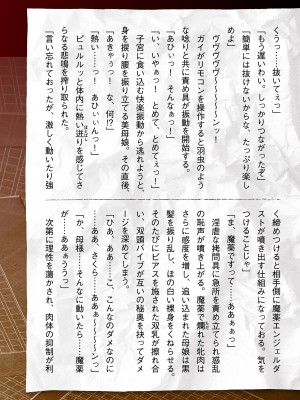 くうっ……抜いてぇっ」
「もう遅いわい。しっかりつながったぞ」
「簡単には抜けないからな、たっぷり楽し
めよ」
ヴヴヴヴヴ～～～～～ンッ！
ガイがリモコンを操作すると羽虫のよう
な唸りと共に責め具が振動を開始する。
「あひぃっ！　そんなぁっ！」
「い、いやぁっ！　とめて、とめてぇっ！」
子宮に食い込む快楽振動から逃れようと、
身を捩り腰を振り立てる美母娘。その直後、
「あきゃうっ！　な、何!?」
「熱い……っ！　あひぃぃんっ！」
ビュルルッと体内に熱い迸りを感じてさ
らなる悲鳴を搾り取られた。
「言い忘れておったが、激しく動いたり強
く締めつけると相手側に魔薬エンジェルダ
ストが噴き出す仕組みになっておる。気を
つけることじゃ」
「ま、魔薬ですって……ああぁぁっ」
淫虐な拷問具に急所を責め立てられ惑乱
の恥声が噴き上がる。魔薬で爛れた牝肉は
さらに感度を増し、追い込まれた母娘は黒
髪を振り乱し、ほの白い裸身をくねらせる。
そのたびにピアスを施された双乳が擦れ合
い、双頭バイブが互いの極奥を抉ってダメ
ージを深めてしまう。
「ひあ、ああ……こ、こんなのダメなのに
……ああ、さくら……ああぁ～～～～ンっ」
「か、母様……そんなに動いたら……魔薬
が……あぁぁううっ」
次第に理性を蕩かされ、肉体の抑制が利